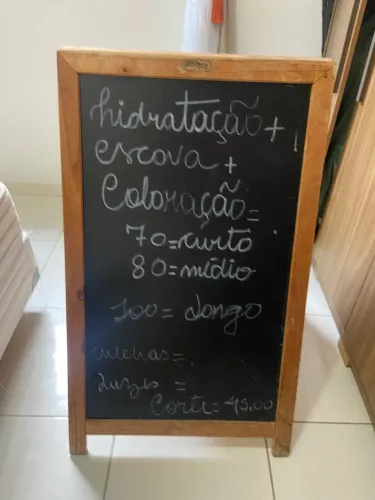 hidratação +
escova +
Coloração =
70=curto
80=médio
100= longo
mechas=
Luzes =
Corte= 45,00